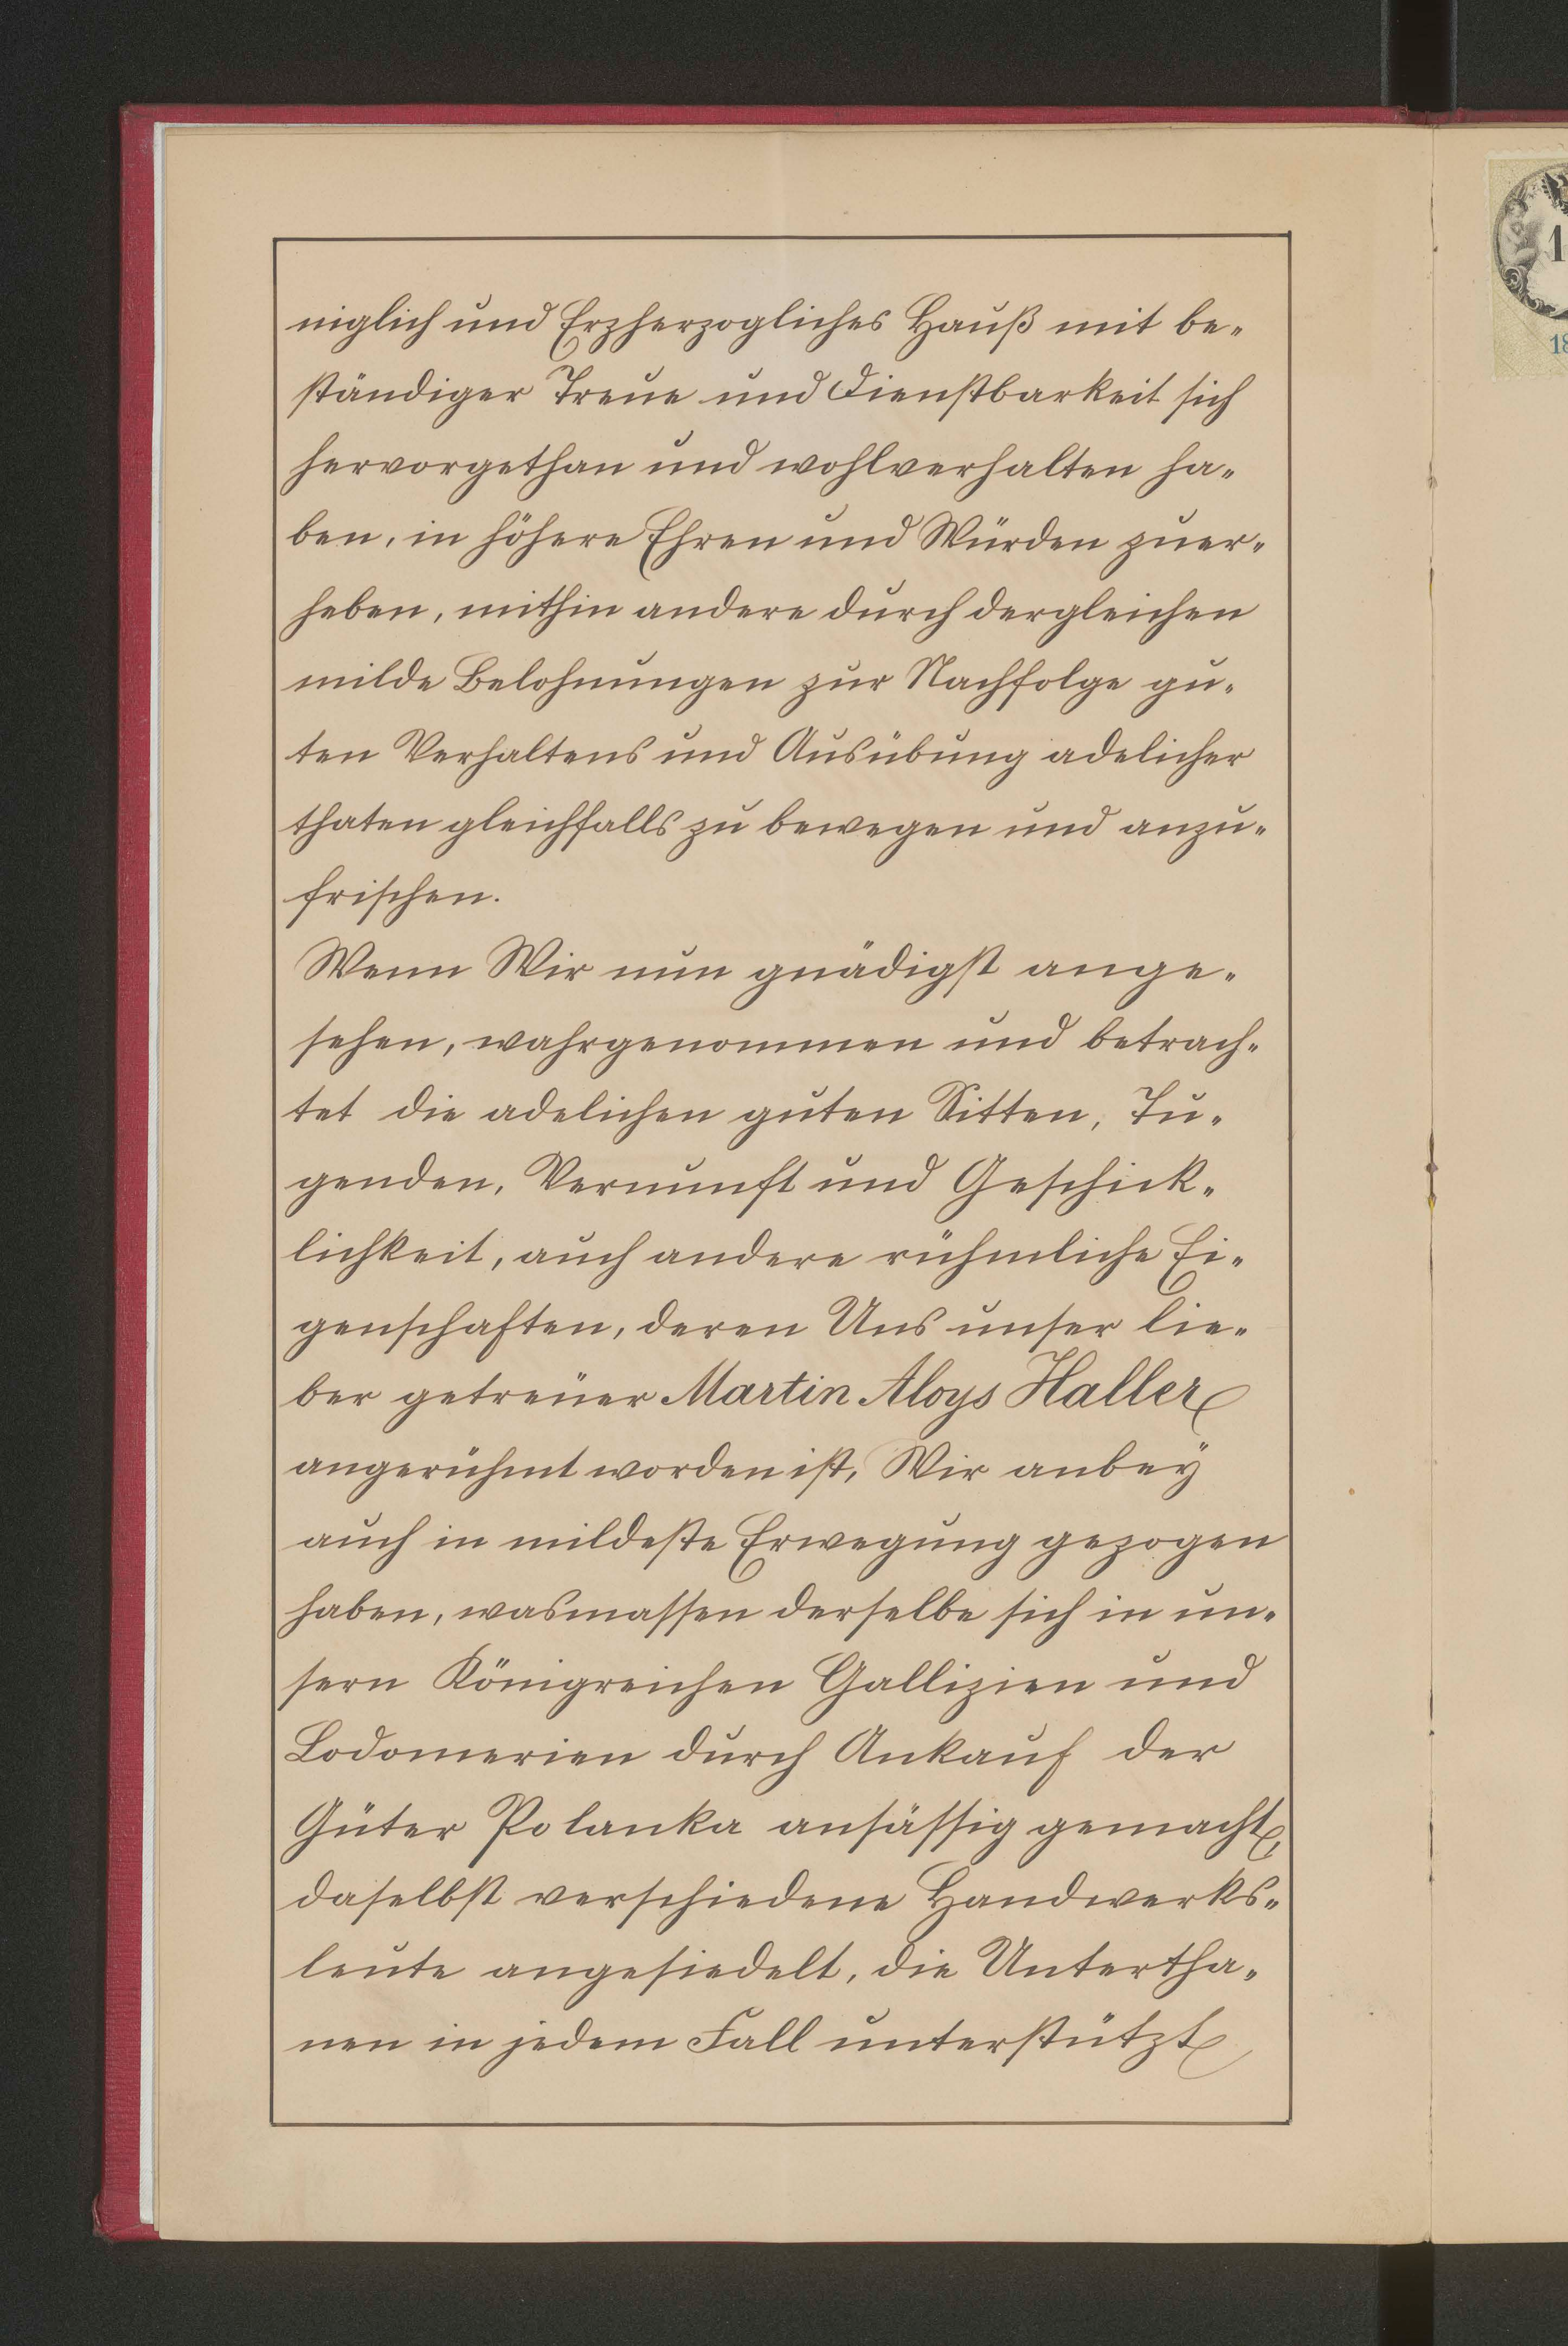 niglich und Erzherzogliches Hauß mit be-
ständiger Treue und Dienstbarkeit sich
hervorgethan und wohlverhalten ha-
ben, in höhere Ehren und Würden zu er-
heben, mithin andere durch dergleichen
milde Belohnungen zur Nachfolge gu-
ten Verhaltens und Ausübung adelicher
thaten gleichfalls zu bewegen und anzu-
frischen.
Wenn Wir nun gnädigst ange-
sehen, wahrgenommen und betrach-
tet die adelichen guten Sitten, Tu-
genden, Vernunft und Geschick-
lichkeit, auch andere rühmliche Ei-
genschaften, deren Uns unser lie-
ber getreüer Martin Aloys Haller
angerühmt worden ist, Wir anbey
auch in mildeste Erwegung gezogen
haben, wasmassen derselbe sich in un-
sern Königreichen Gallizien und
Lodomerien durch Ankauf der
Güter Polanka ansässig gemacht,
daselbst verschiedene Handwerks-
leute angesiedelt, die Untertha-
nen in jedem Fall unterstützt
1
18